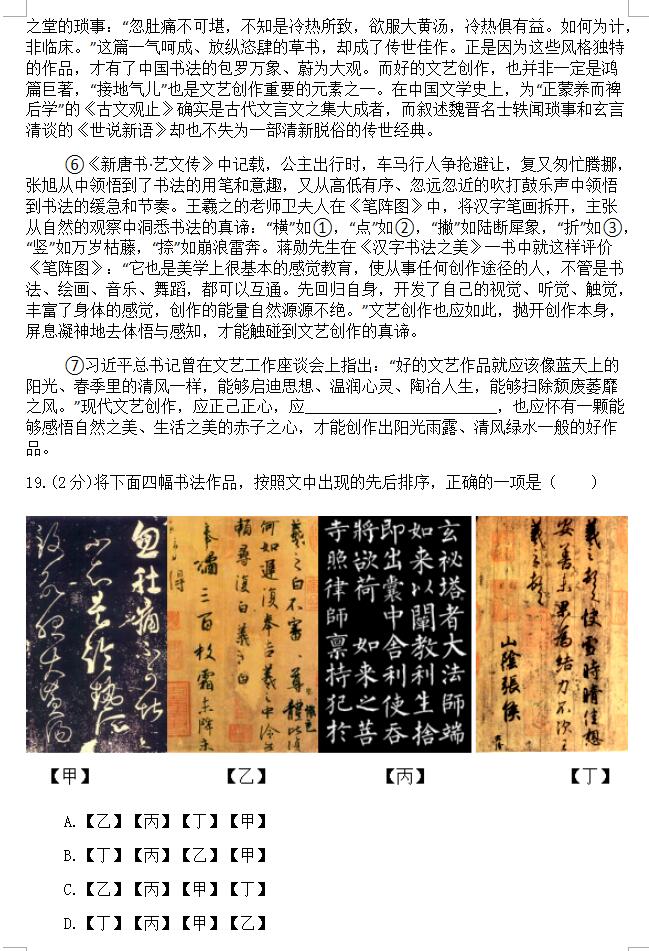 之堂的琐事：“忽肚痛不可堪，不知是冷热所致，欲服大黄汤，冷热俱有益。如何为计，
非临床。”这篇一气呵成、放纵恣肆的草书，却成了传世佳作。正是因为这些风格独特
的作品，才有了中国书法的包罗万象、蔚为大观。而好的文艺创作，也并非一定是鸿
篇巨著，“接地气儿”也是文艺创作重要的元素之一。在中国文学史上，为“正蒙养而裨
后学”的《古文观止》确实是古代文言文之集大成者，而叙述魏晋名士轶闻琐事和玄言
清谈的《世说新语》却也不失为一部清新脱俗的传世经典。
⑥《新唐书·艺文传》中记载，公主出行时，车马行人争抢避让，复又匆忙腾挪，
张旭从中领悟到了书法的用笔和意趣，又从高低有序、忽远忽近的吹打鼓乐声中领悟
到书法的缓急和节奏。王羲之的老师卫夫人在《笔阵图》中，将汉字笔画拆开，主张
从自然的观察中洞悉书法的真谛：“横”如①，“点”如②，“撇”如陆断犀象，“折”如③，
“竖”如万岁枯藤，“捺”如崩浪雷奔。蒋勋先生在《汉字书法之美》一书中就这样评价
《笔阵图》：“它也是美学上很基本的感觉教育，使从事任何创作途径的人，不管是书
法、绘画、音乐、舞蹈，都可以互通。先回归自身，开发了自己的视觉、听觉、触觉，
丰富了身体的感觉，创作的能量自然源源不绝。”文艺创作也应如此，抛开创作本身，
屏息凝神地去体悟与感知，才能触碰到文艺创作的真谛。
⑦习近平总书记曾在文艺工作座谈会上指出：“好的文艺作品就应该像蓝天上的
阳光、春季里的清风一样，能够启迪思想、温润心灵、陶冶人生，能够扫除颓废萎靡
之风。”现代文艺创作，应正己正心，应________________________，也应怀有一颗能
够感悟自然之美、生活之美的赤子之心，才能创作出阳光雨露、清风绿水一般的好作
品。
19.(2分)将下面四幅书法作品，按照文中出现的先后排序，正确的一项是（　　）
忽肚痛不可堪
不知是冷熱所
致欲服大黃湯
羲之白不審尊體比復
何如遲復奉告羲之中冷無
賴尋復白羲之白
奉橘三百枚霜未降未
玄秘塔者大法師端
如來以闡教利生捨
即出囊中舍利使吞
將欲荷 如來之菩
寺照律師禀持犯於
羲之頓首快雪時晴佳想
安善未果為結力不次王
羲之頓首
山陰張侯
【甲】 【乙】 【丙】 【丁】
A.【乙】【丙】【丁】【甲】
B.【丁】【丙】【乙】【甲】
C.【乙】【丙】【甲】【丁】
D.【丁】【丙】【甲】【乙】